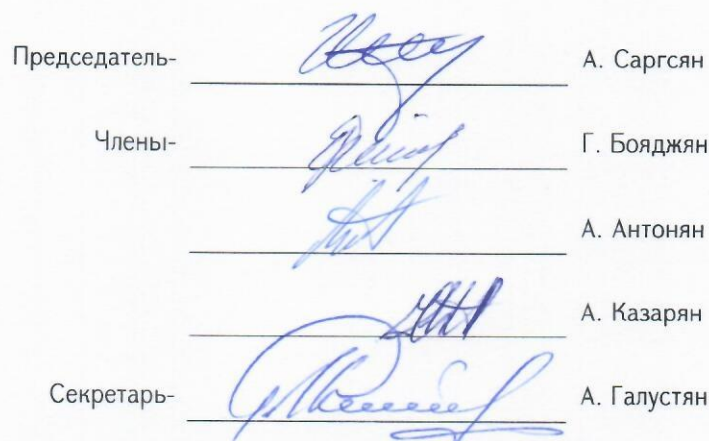 Председатель- А. Саргсян
Члены- Г. Бояджян
А. Антонян
А. Казарян
Секретарь- А. Галустян